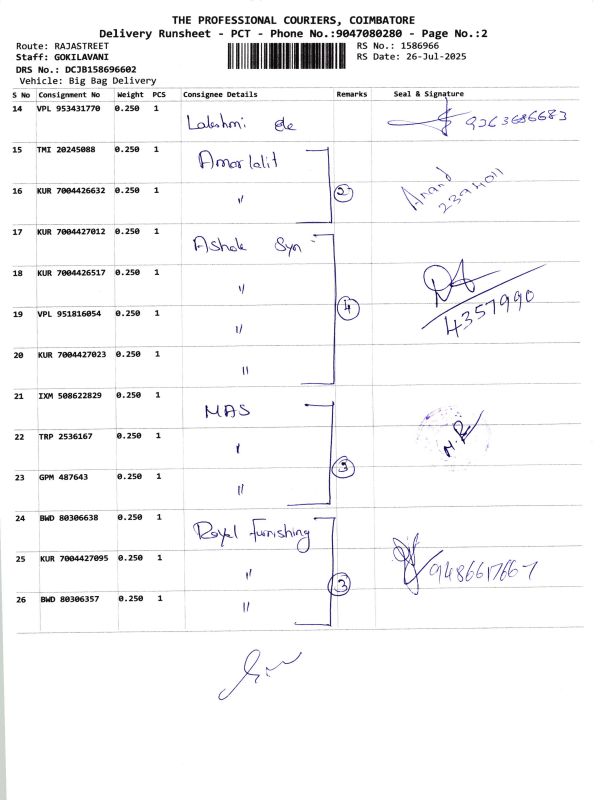 THE PROFESSIONAL COURIERS, COIMBATORE
Delivery Runsheet - PCT - Phone No.:9047080280 - Page No.:2
Route: RAJASTREET
RS No.: 1586966
Staff: GOKILAVANI
RS Date: 26-Jul-2025
DRS No.: DCJB158696602
Vehicle: Big Bag Delivery
S No Consignment No Weight PCS Consignee Details Remarks Seal & Signature
14 VPL 953431770 0.250 1 Lakshmi 9263686683
15 TMI 20245088 0.250 1 Amarlalit
16 KUR 7004426632 0.250 1 〃 2 Anand 2394011
17 KUR 7004427012 0.250 1 Ashok Syn
18 KUR 7004426517 0.250 1 〃
19 VPL 951816054 0.250 1 〃 4 4357990
20 KUR 7004427023 0.250 1 〃
21 IXM 508622829 0.250 1 MAS
22 TRP 2536167 0.250 1 〃
23 GPM 487643 0.250 1 〃 3
24 BWD 80306638 0.250 1 Royal Furnishing
25 KUR 7004427095 0.250 1 〃 3 9486617667
26 BWD 80306357 0.250 1 〃